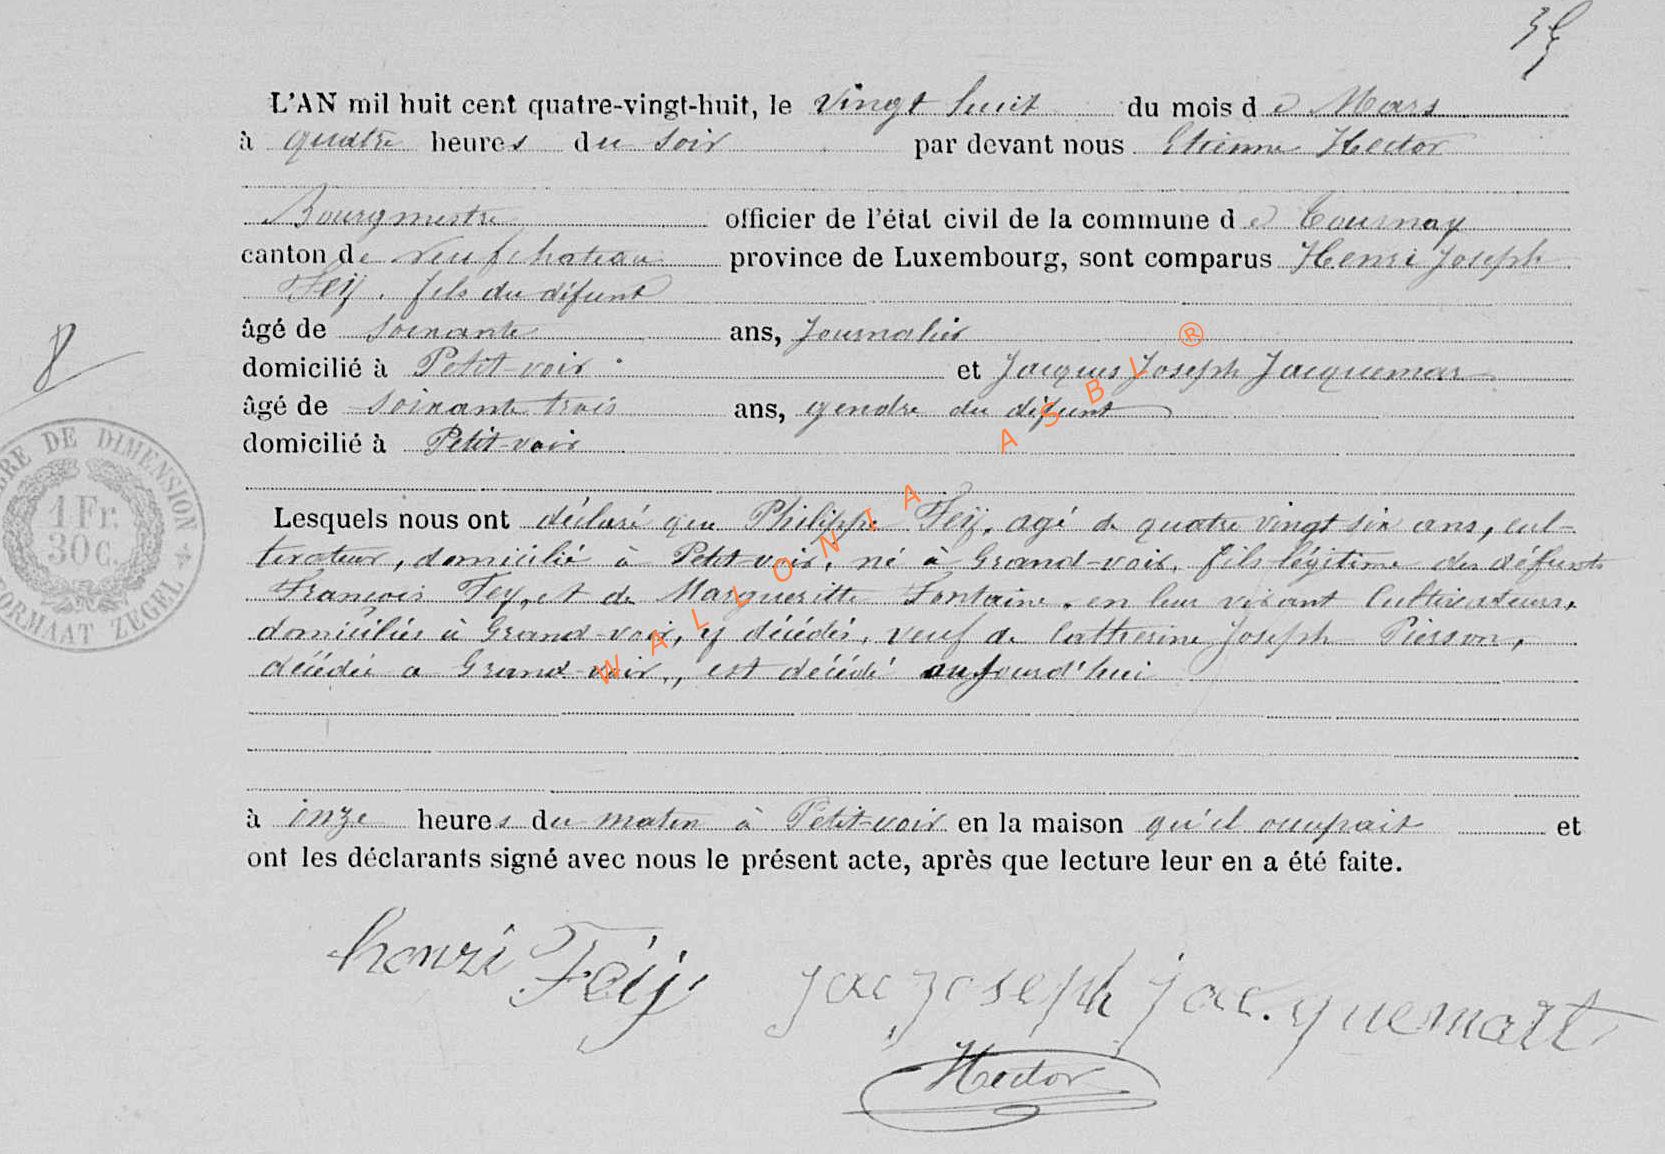 L'AN mil huit cent quatre-vingt-huit, le vingt huit du mois de Mars
à quatre heures du soir par devant nous Etienne Hector
Bourgmestre officier de l'état civil de la commune de Tournay
canton de Neufchateau province de Luxembourg, sont comparus Henri Joseph
Feÿ, fils du défunt
âgé de soixante ans, Journalier
domicilié à Petit-voir et Jacques Joseph Jacquemar
8
âgé de soixante trois ans, gendre du défunt
domicilié à Petit-voir
DE DIMENSION
1 Fr.
30 C.
FORMAAT ZEGEL
Lesquels nous ont déclaré que Philippe Feÿ, agé de quatre vingt six ans, cul-
tivateur, domicilié à Petit-voir, né à Grand-voir, fils légitime des défunts
François Fey, et de Margueritte Fontaine, en leur vivant Cultivateurs,
domiciliés à Grand-voir, y décédés, veuf de Catherine Joseph Pierson,
décédée a Grand-voir, est décédé aujourd'hui
à onze heures du matin à Petit-voir en la maison qu'il occupait et
ont les déclarants signé avec nous le présent acte, après que lecture leur en a été faite.
henri Feÿ Jac Joseph Jacquemart
Hector
WALLONIA ASBL ®